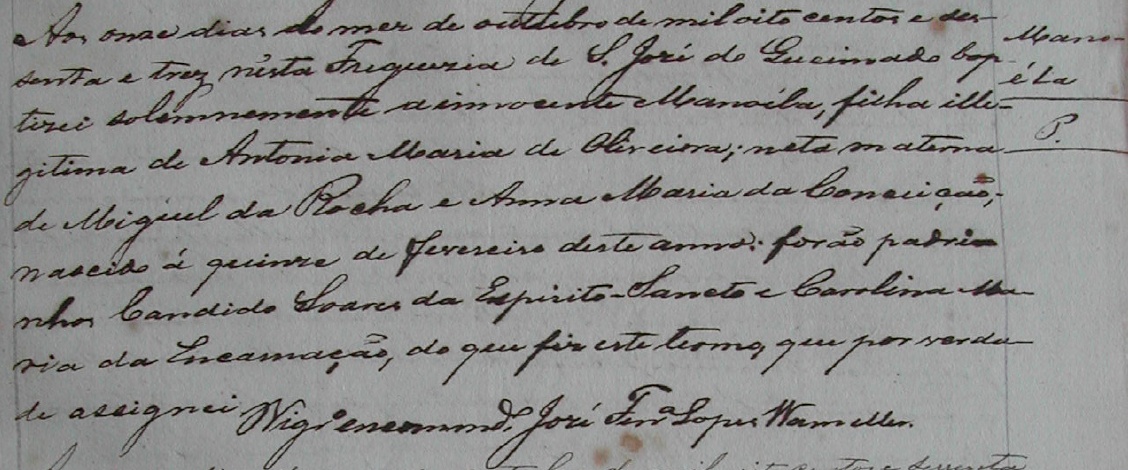 Aos onze dias do mez de outubro de mil oito centos e ses-
senta e trez n'esta Freguezia de S. José do Queimado bap
tizei solemnemente a innocente Manoéla, filha ille-
gitima de Antonia Maria de Oliveira; neta materna
de Miguel da Rocha e Anna Maria da Conceição;
nascida á quinze de Fevereiro deste anno: forão padri-
nhos Candido Soares do Espirito-Sancto e Carolina Ma-
ria da Encarnação, do que fiz este termo, que por verda-
de assignei
Vigrº encommdº José Ferrª Lopes
Mano-
éla
P.